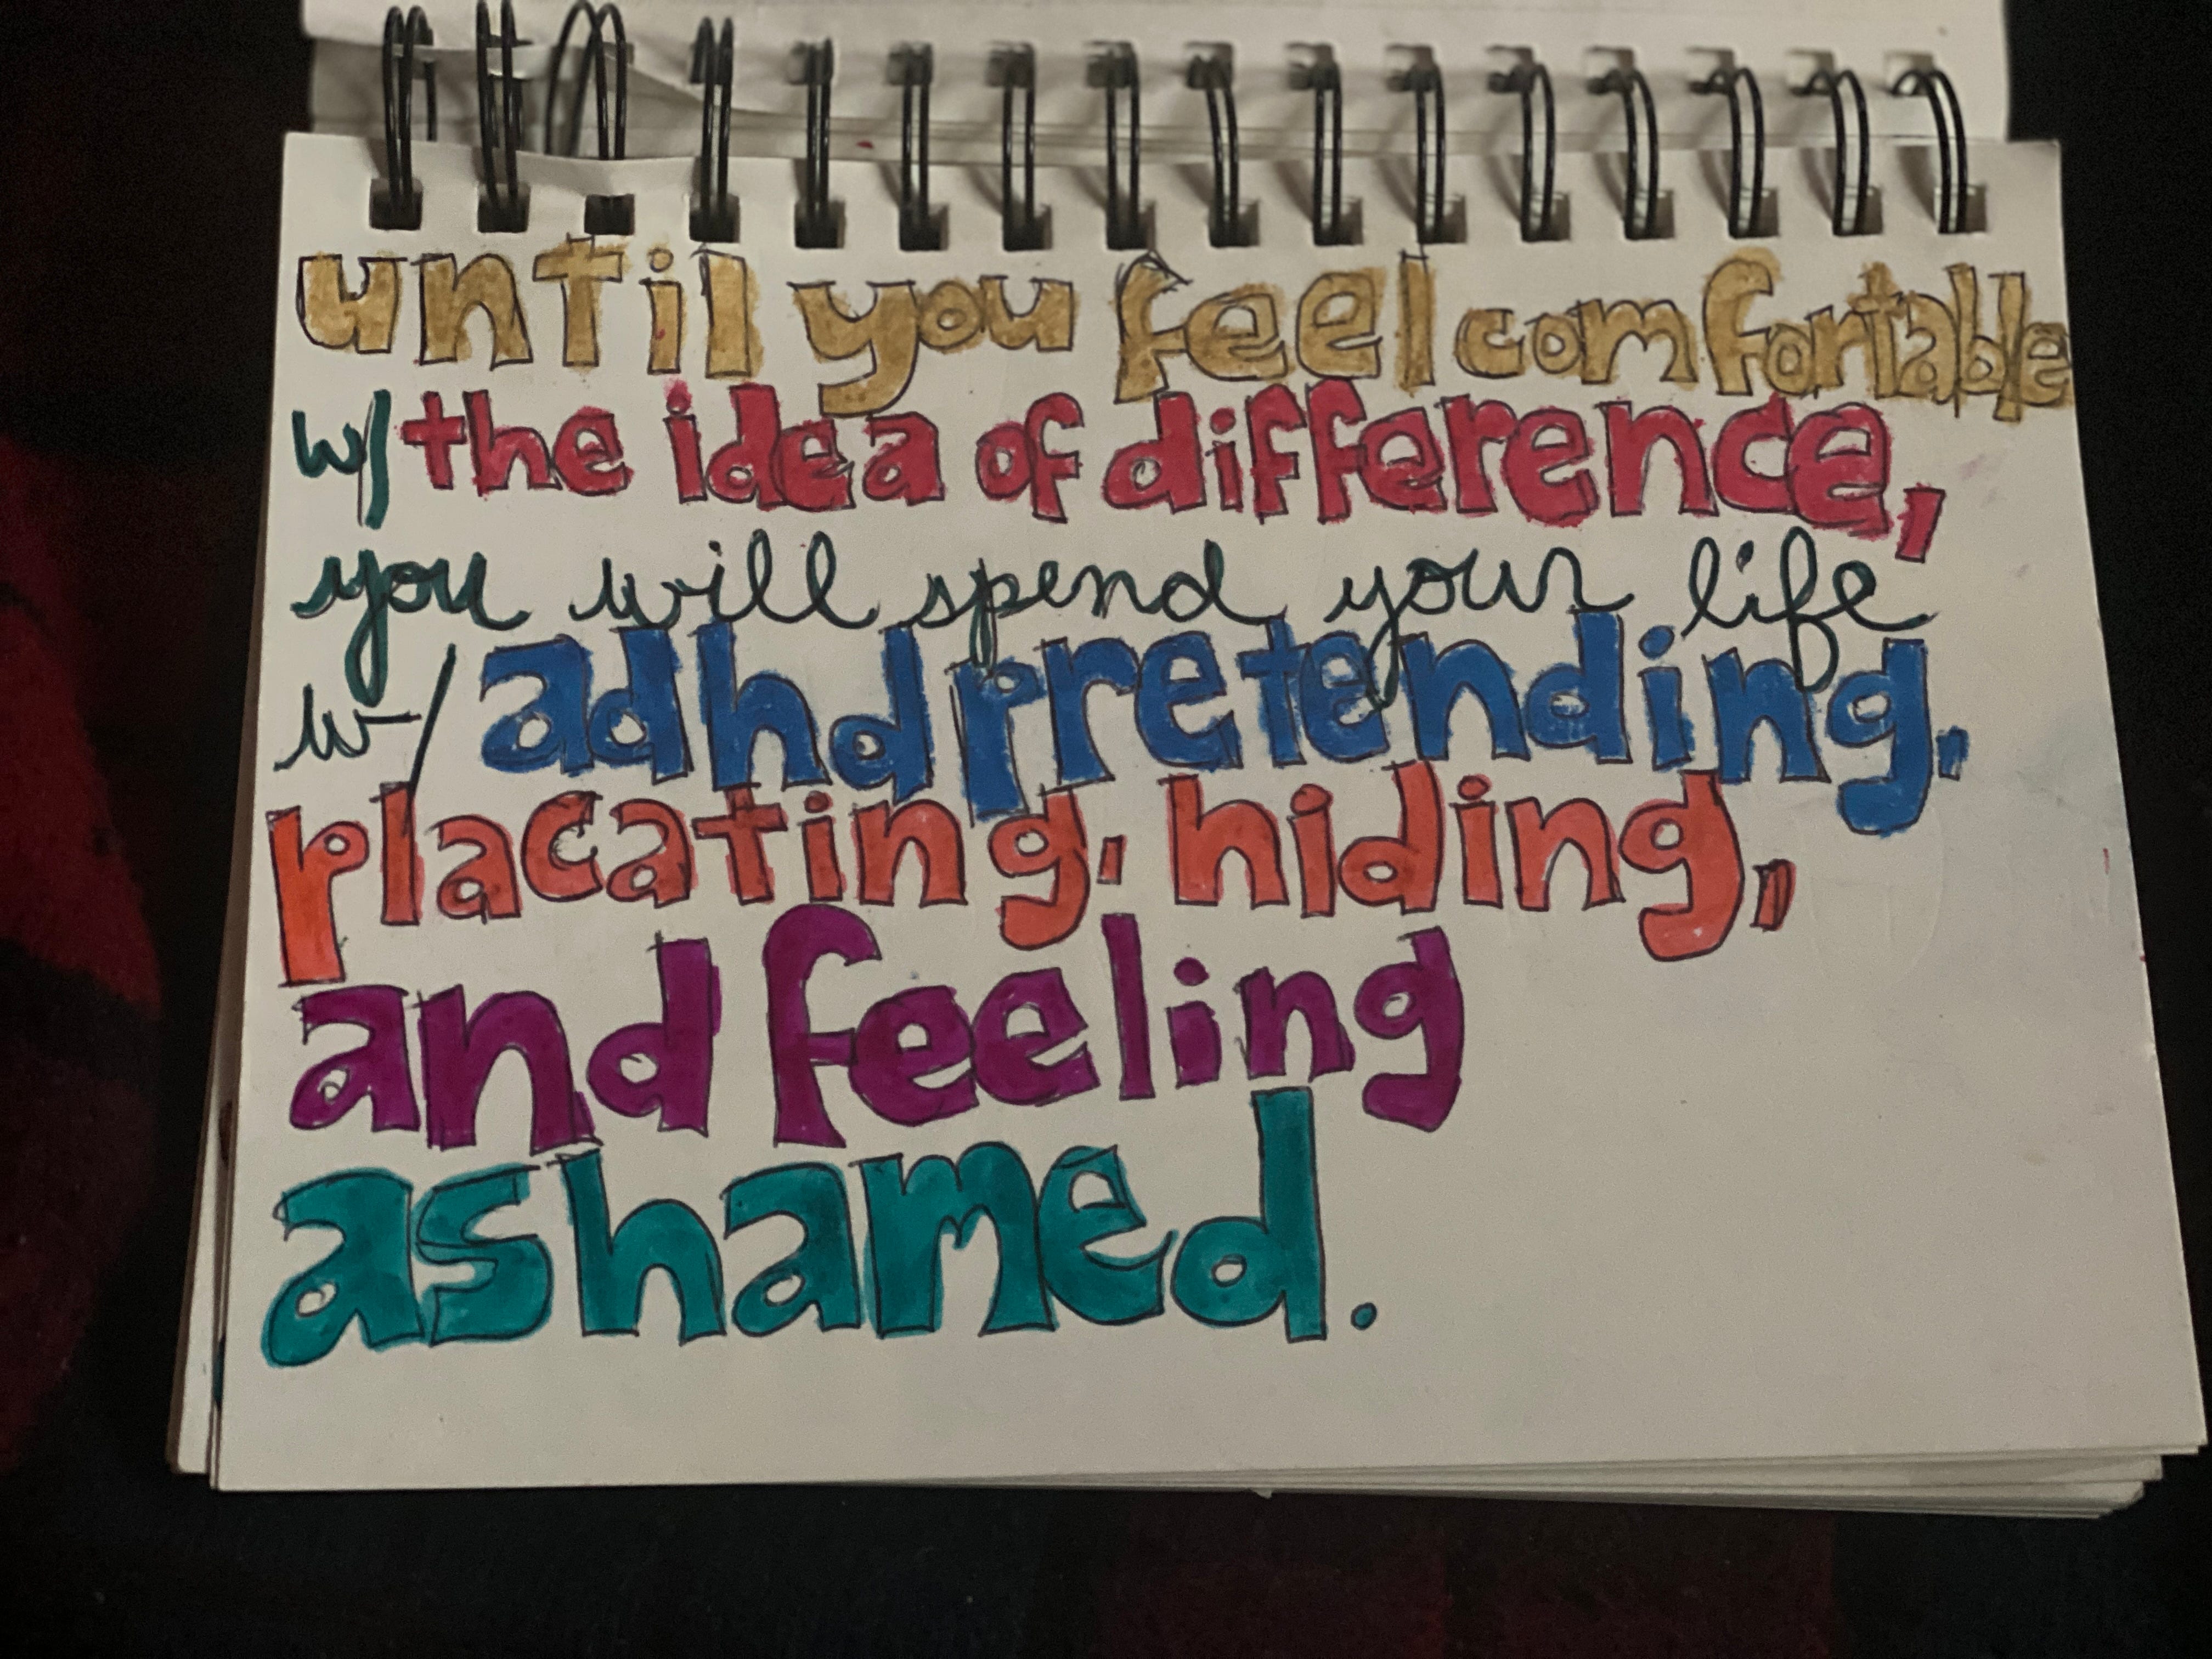 until you feel comfortable
w/ the idea of difference,
you will spend your life
w/ adhd pretending,
placating, hiding,
and feeling
ashamed.